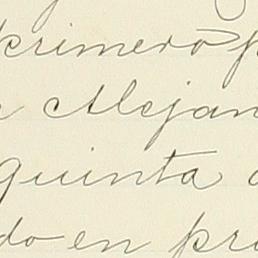 primero p
e Alejan
quinta d
do en pri